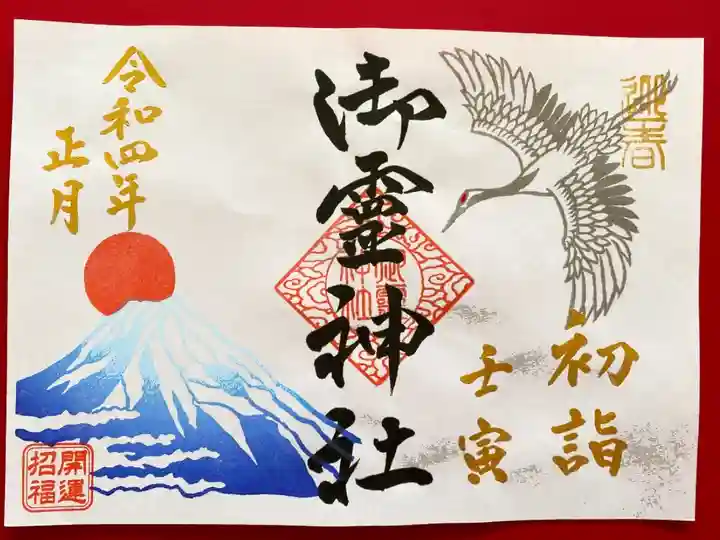 迎春
初詣
壬寅
御霊神社
御霊神社
令和四年
正月
開運
招福